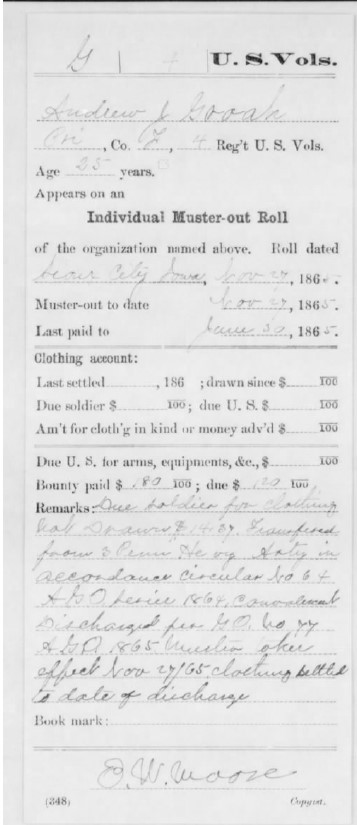 G | 4 | U. S. Vols.
Andrew J
Pri, Co. , 4 Reg't U. S. Vols.
Age 25 years.
Appears on an
Individual Muster-out Roll
of the organization named above. Roll dated
Sioux City Iowa, Nov 27, 1865.
Muster-out to date Nov 27, 1865.
Last paid to June 30, 1865.
Clothing account:
Last settled , 186 ; drawn since $ 100
Due soldier $ 100; due U. S. $ 100
Am't for cloth'g in kind or money adv'd $ 100
Due U. S. for arms, equipments, &c., $ 100
Bounty paid $ 180 100; due $ 120 100
Remarks: Due soldier for clothing
not drawn $14.27. Transferred
from 3 Penn Hevy Arty in
accordance circular No 64
A.G.O. 1864,
Discharged per G.O. No 77
A.G.O. 1865. Muster
effect Nov 27/65 clothing settled
to date of discharge
Book mark:
E. W. Moore
(348) Copyist.